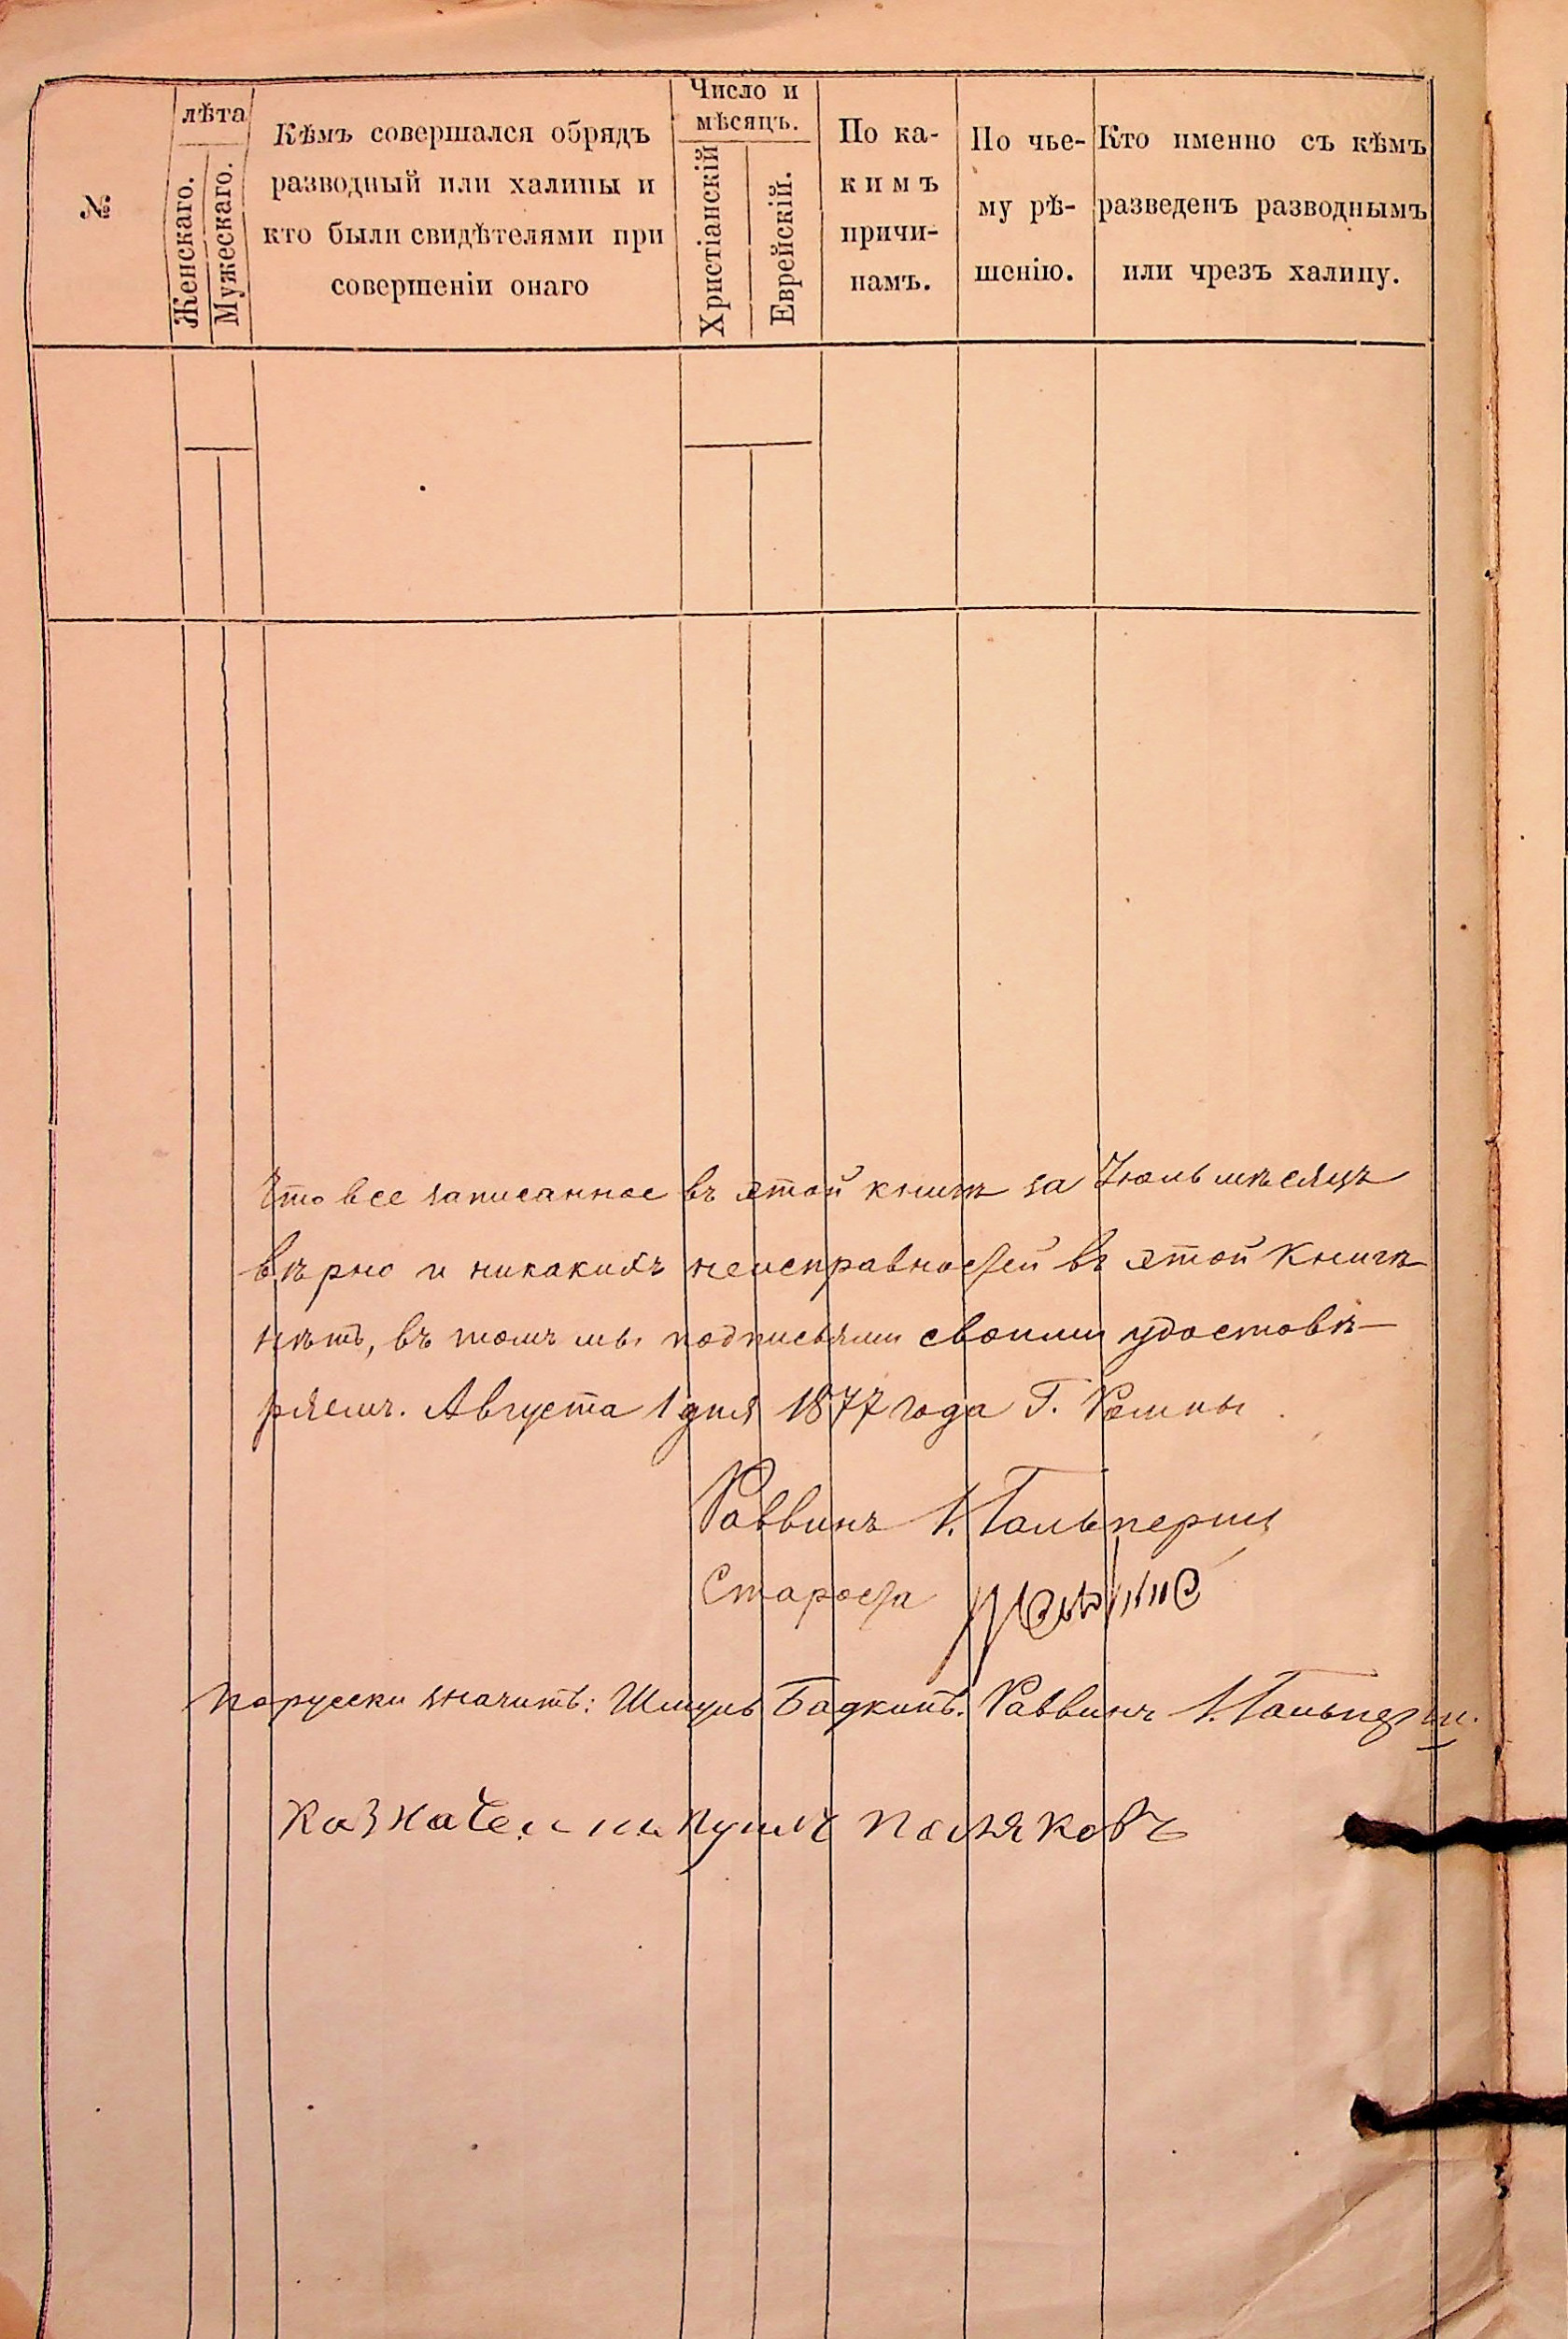 №
лѣта
Женскаго.
Мужескаго.
Кѣмъ совершался обрядъ
разводный или халицы и
кто были свидѣтелями при
совершеніи онаго
Число и
мѣсяцъ.
Христіанскій
Еврейскій.
По ка-
кимъ
причи-
намъ.
По чье-
му рѣ-
шенію.
Кто именно съ кѣмъ
разведенъ разводнымъ
или чрезъ халицу.
Что все записанное въ этой книгѣ за Іюль мѣсяцъ
вѣрно и никакихъ неисправностей въ этой Книгѣ
нѣтъ, въ томъ мы подписьями своими удостовѣ-
ряемъ. Августа 1 дня 1877 года Г. Ромны
Раввинъ И. Гальперин
Староста
По русски значитъ: Шмуль Бадкинъ. Раввинъ И. Гальперин.
Казначей поляковъ